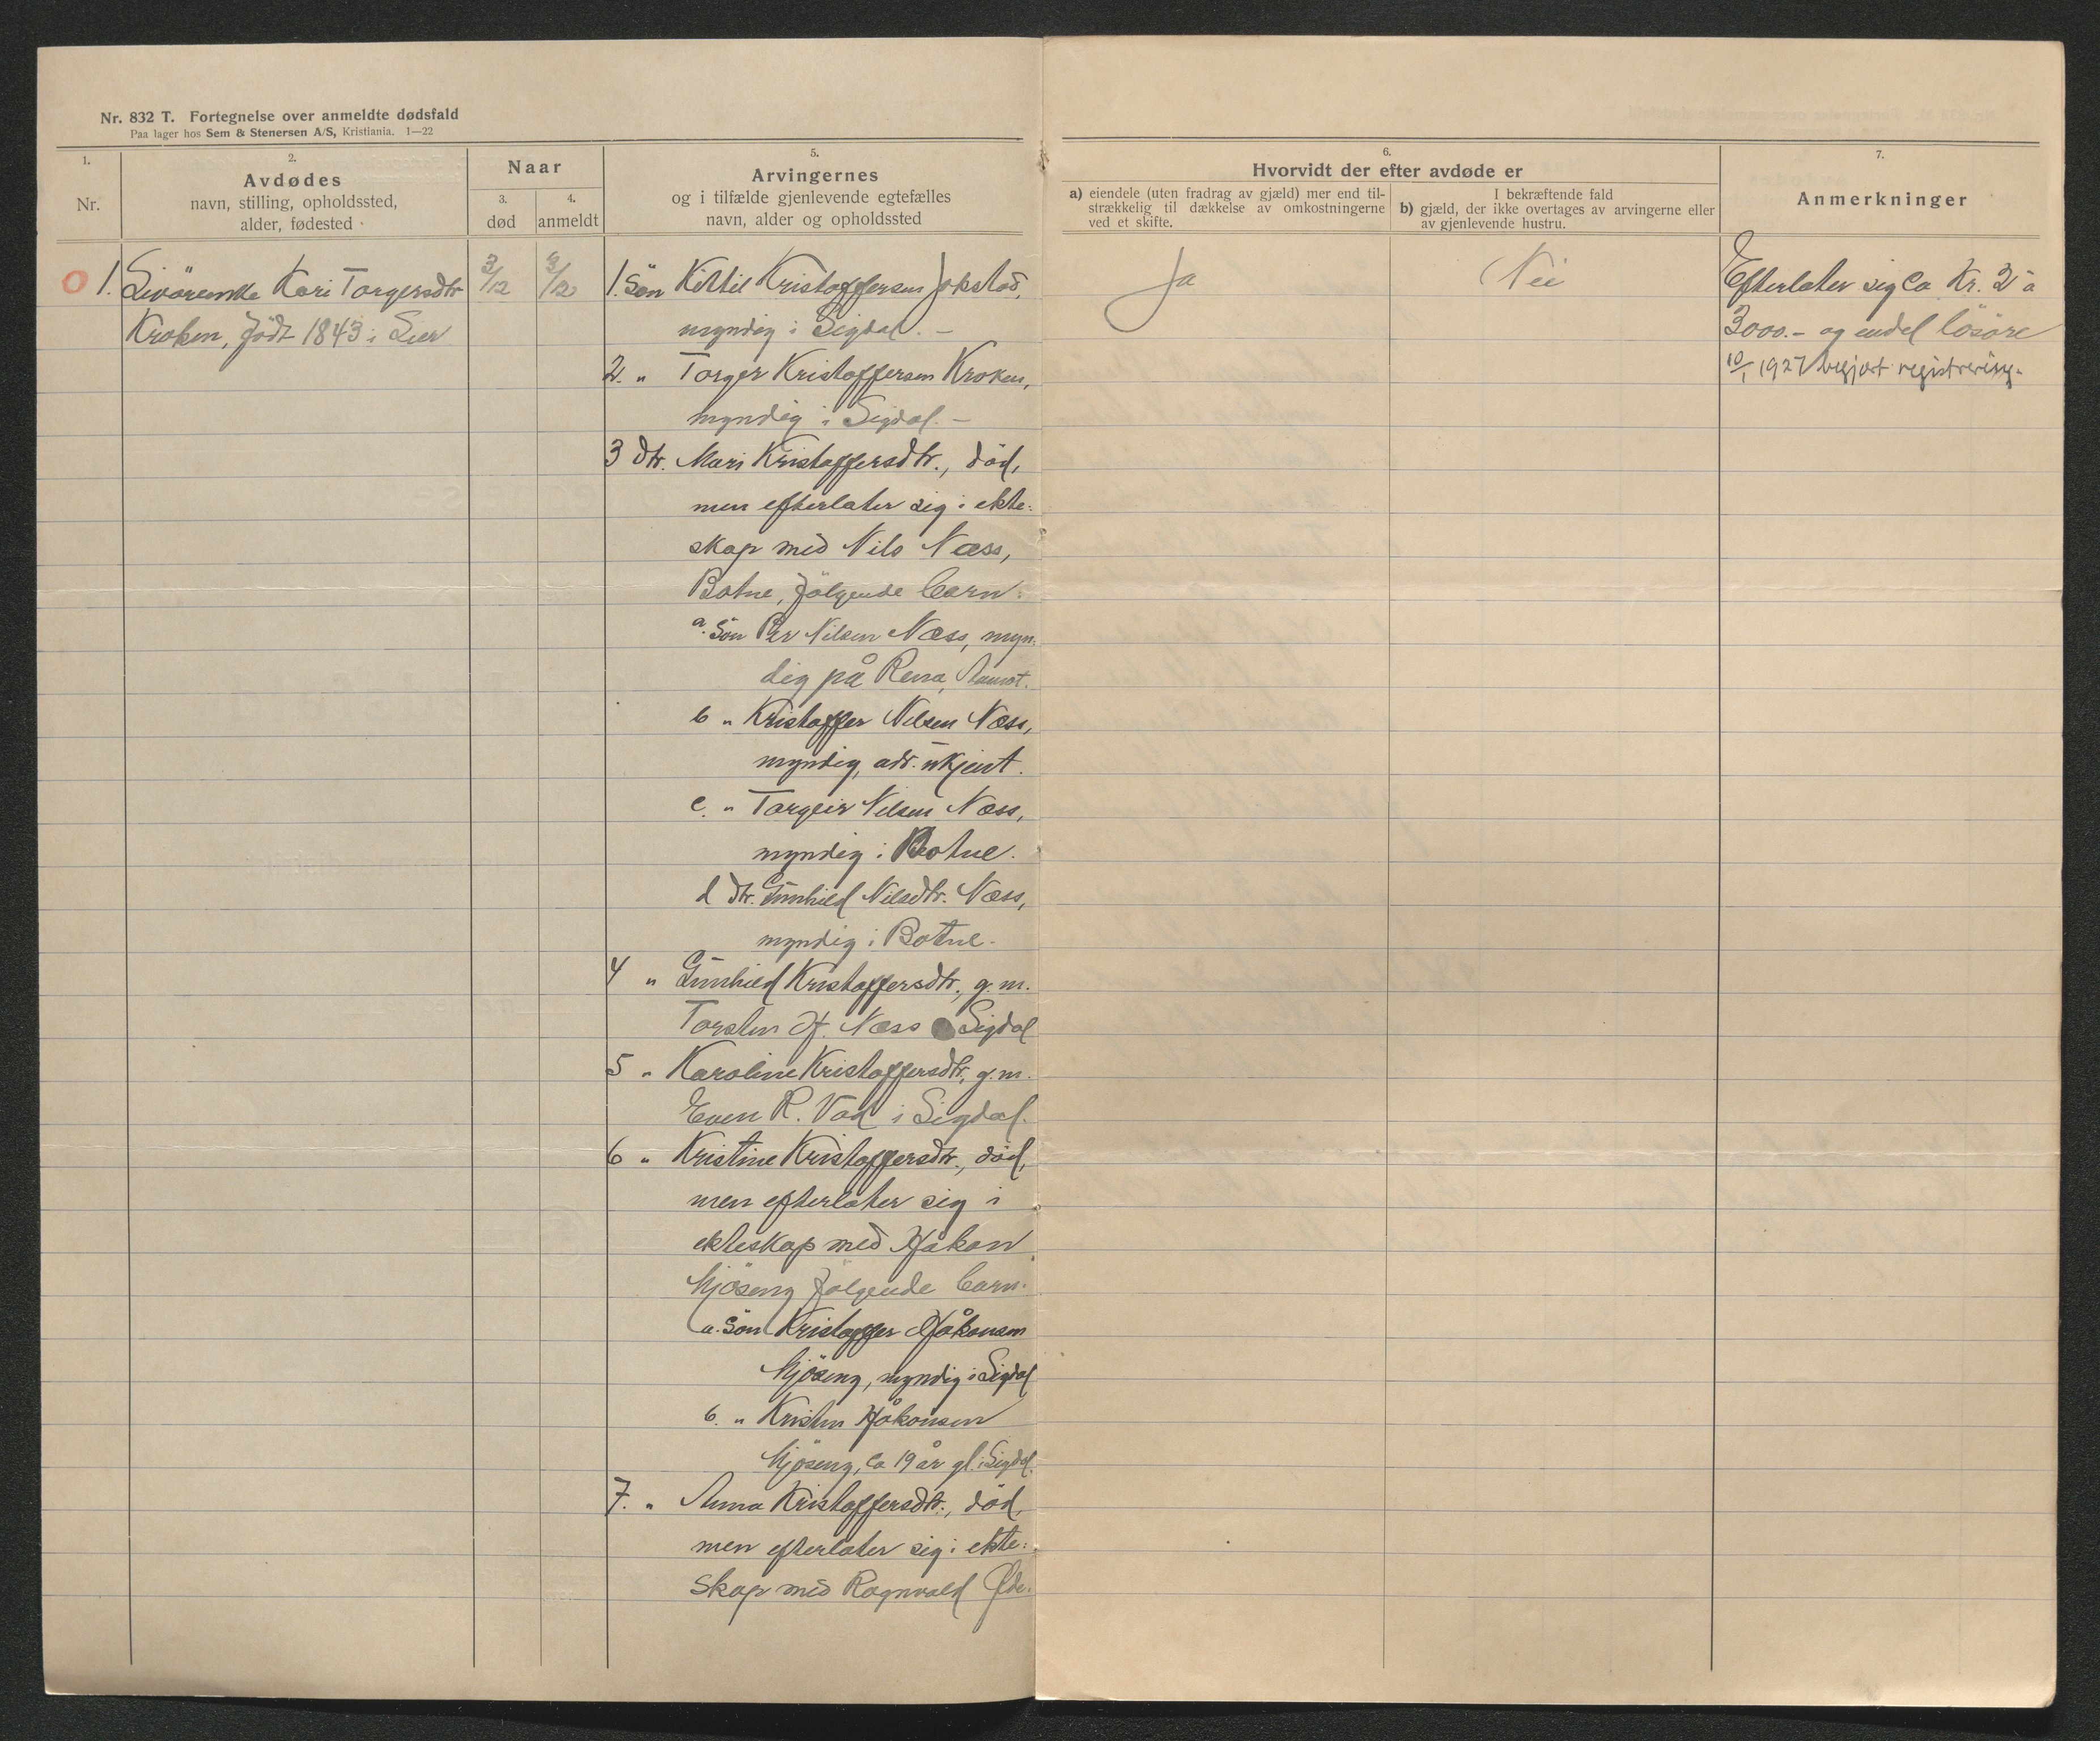 Nr. 832 T. Fortegnelse over anmeldte dødsfald
Paa lager hos Sem & Stenersen A/S, Kristiania. 1—22
1.
Nr.
2.
Avdødes
navn, stilling, opholdssted,
alder, fødested
Naar
3.
død
4.
anmeldt
5.
Arvingernes
og i tilfælde gjenlevende egtefælles
navn, alder og opholdssted
6.
Hvorvidt der efter avdøde er
a) eiendele (uten fradrag av gjæld) mer end til-
strækkelig til dækkelse av omkostningerne
ved et skifte.
I bekræftende fald
b) gjæld, der ikke overtages av arvingerne eller
av gjenlevende hustru.
7.
Anmerkninger
1. Livörenke Kari Torgersdtr
Kroken, født 1843 i Lier
3/12
9/12
1. Sön Kittil Kristoffersen Jokstad,
myndig i Sigdal. –
2. " Torger Kristoffersen Kroken,
myndig i Sigdal. –
3 dtr. Mari Kristoffersdtr., död,
men efterlater sig i ekte-
skap med Nils Næss,
Botne, følgende barn:
a. Sön Per Nilsen Næss, myn-
dig på Rena, Aamot.
b " Kristoffer Nilsen Næss,
myndig, adr. ukjent.
c. " Torgeir Nilsen Næss,
myndig i Botne.
d dtr. Gunhild Nilsdtr. Næss,
myndig i Botne.
4 " Gunhild Kristoffersdtr., g.m.
Torsten H. Næss Sigdal
5 " Karoline Kristoffersdtr., g.m.
Even R. Vad i Sigdal.
6 " Kristine Kristoffersdtr., död,
men efterlater sig i
ekteskap med Håkon
Mjöseng følgende barn:
a. Sön Kristoffer Håkonsen
Mjöseng, myndig i Sigdal
b. " Kristen Håkonsen
Mjöseng, ca 19 år gl. i Sigdal.
7. " Anna Kristoffersdtr., död,
men efterlater sig i ekte-
skap med Ragnvald Øde-
Ja
Nei
Efterlater sig ca Kr. 2 à
3000.– og endel lösöre
10/1 1927 begjært registrering.